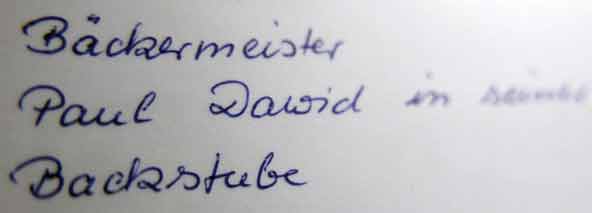 Bäckermeister
Paul Dawid in seiner
Backstube